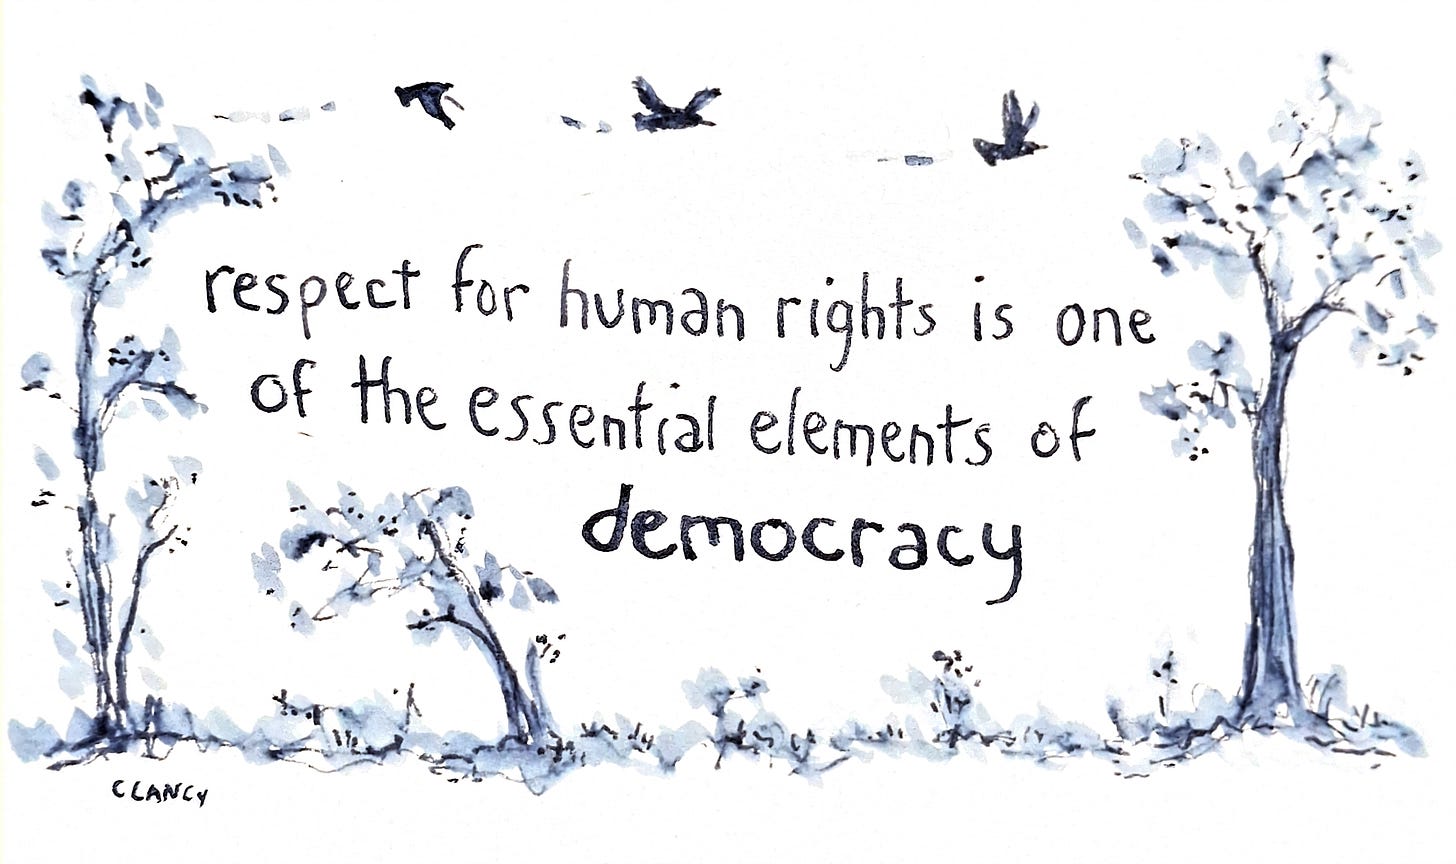 respect for human rights is one
of the essential elements of
democracy
CLANCY